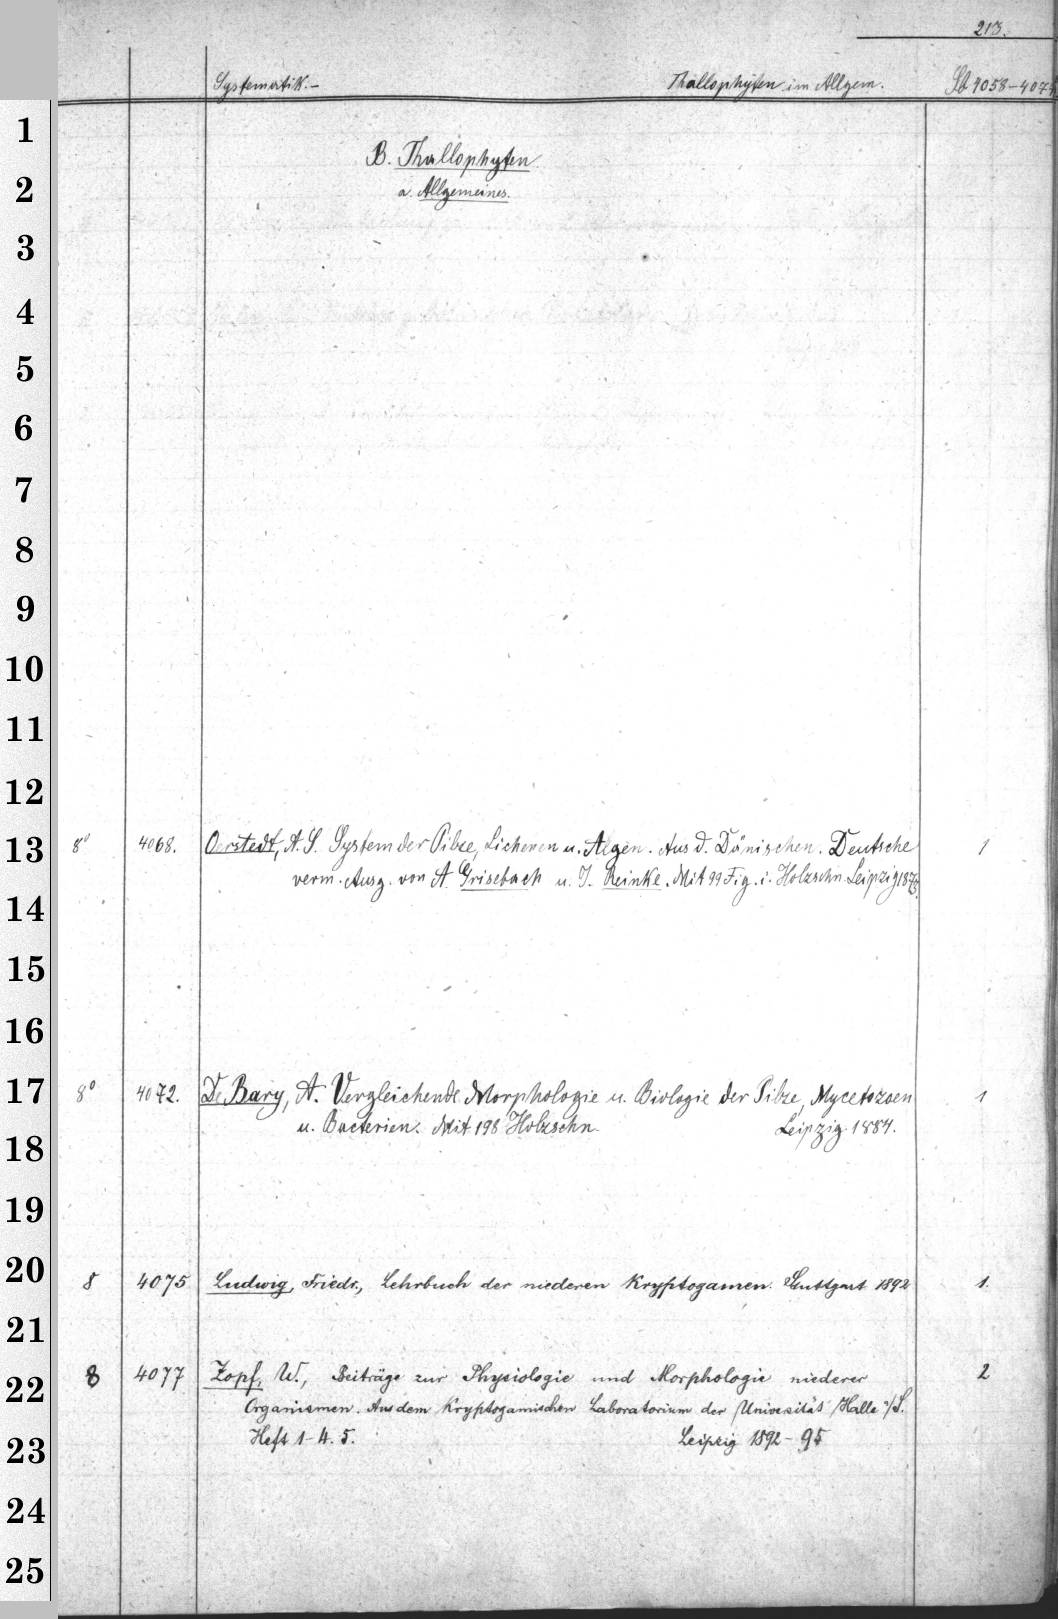 213.
Systematik.- Thallophyten im Allgem. Sb 4058-407
1
B. Thallophyten
2
a. Allgemeines.
3
4
5
6
7
8
9
10
11
12
13 8° 4068. Oerstedt, A. S. System der Pilze, Lichenen u. Algen. Aus d. Dänischen. Deutsche 1
verm. Ausg. von A. Grisebach u. J. Reinke. Mit 99 Fig. i. Holzschn. Leipzig 1873.
14
15
16
17 8° 4072. De Bary, A. Vergleichende Morphologie u. Biologie der Pilze, Mycetozoen 1
u. Bacterien. Mit 198 Holzschn. Leipzig. 1884.
18
19
20 8 4075 Ludwig, Friedr., Lehrbuch der niederen Kryptogamen. Stuttgart 1892 1.
21
22 8 4077 Zopf, W., Beiträge zur Physiologie und Morphologie niederer 2
Organismen. Aus dem Kryptogamischen Laboratorium der Universität Halle a/S.
23 Heft 1-4. 5. Leipzig 1892-95
24
25